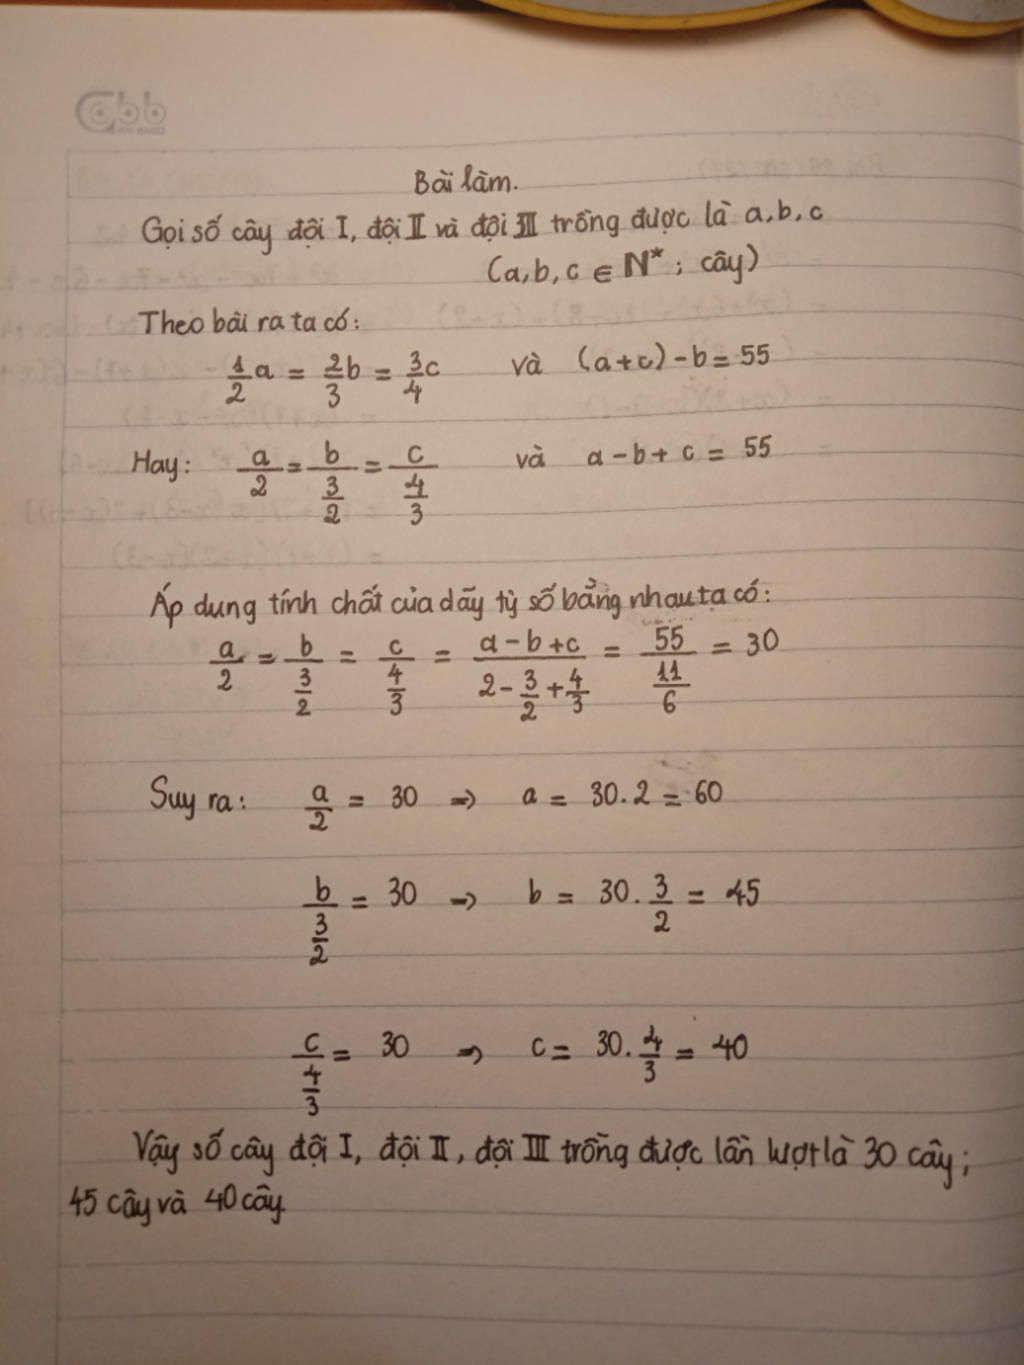 Bài làm.
Gọi số cây đội I, đội II và đội III trồng được là a, b, c
(a, b, c ∈ N* ; cây)
Theo bài ra ta có:
1/2 a = 2/3 b = 3/4 c và (a+c) - b = 55
Hay: a/2 = b/(3/2) = c/(4/3) và a - b + c = 55
Áp dung tính chất của dãy tỷ số bằng nhau ta có:
a/2 = b/(3/2) = c/(4/3) = (a - b + c)/(2 - 3/2 + 4/3) = 55/(11/6) = 30
Suy ra: a/2 = 30 => a = 30.2 = 60
b/(3/2) = 30 => b = 30. 3/2 = 45
c/(4/3) = 30 => c = 30. 4/3 = 40
Vậy số cây đội I, đội II, đội III trồng được lần lượt là 30 cây;
45 cây và 40 cây.